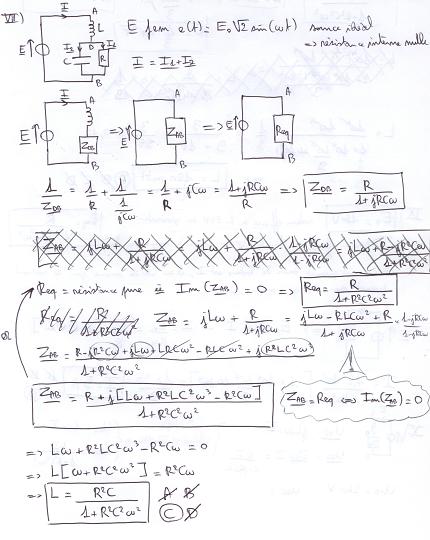 VII)
I
A
L
E fem e(t) = E₀√2 sin(ωt) source idéal
=> résistance interne nulle
E
I₂ D I₁
C R
B
I = I₁ + I₂
I A A A
E Z_DB => E Z_AB => E Req
B B B
1/Z_DB = 1/R + 1/(1/jCω) = 1/R + jCω = (1+jRCω)/R => Z_DB = R/(1+jRCω)
Z_AB = jLω + R/(1+jRCω) = jLω + R/(1+jRCω) · (1-jRCω)/(1-jRCω) = jLω + (R-jR²Cω)/(1+R²C²ω²)
Req = résistance pure Im(Z_AB) = 0 => Req = R/(1+R²C²ω²)
Z_AB = jLω + R/(1+jRCω) = (jLω - RLCω² + R)/(1+jRCω) · (1-jRCω)/(1-jRCω)
Z_AB = (R - jR²Cω + jLω + LRCω² - RLCω² + j(R²LC²ω³))/(1+R²C²ω²)
Z_AB = (R + j[Lω + R²LC²ω³ - R²Cω])/(1+R²C²ω²)
Z_AB = Req <=> Im(Z_AB) = 0
=> Lω + R²LC²ω³ - R²Cω = 0
=> L[ω + R²C²ω³] = R²Cω
=> L = R²C/(1+R²C²ω²)
A B
C D